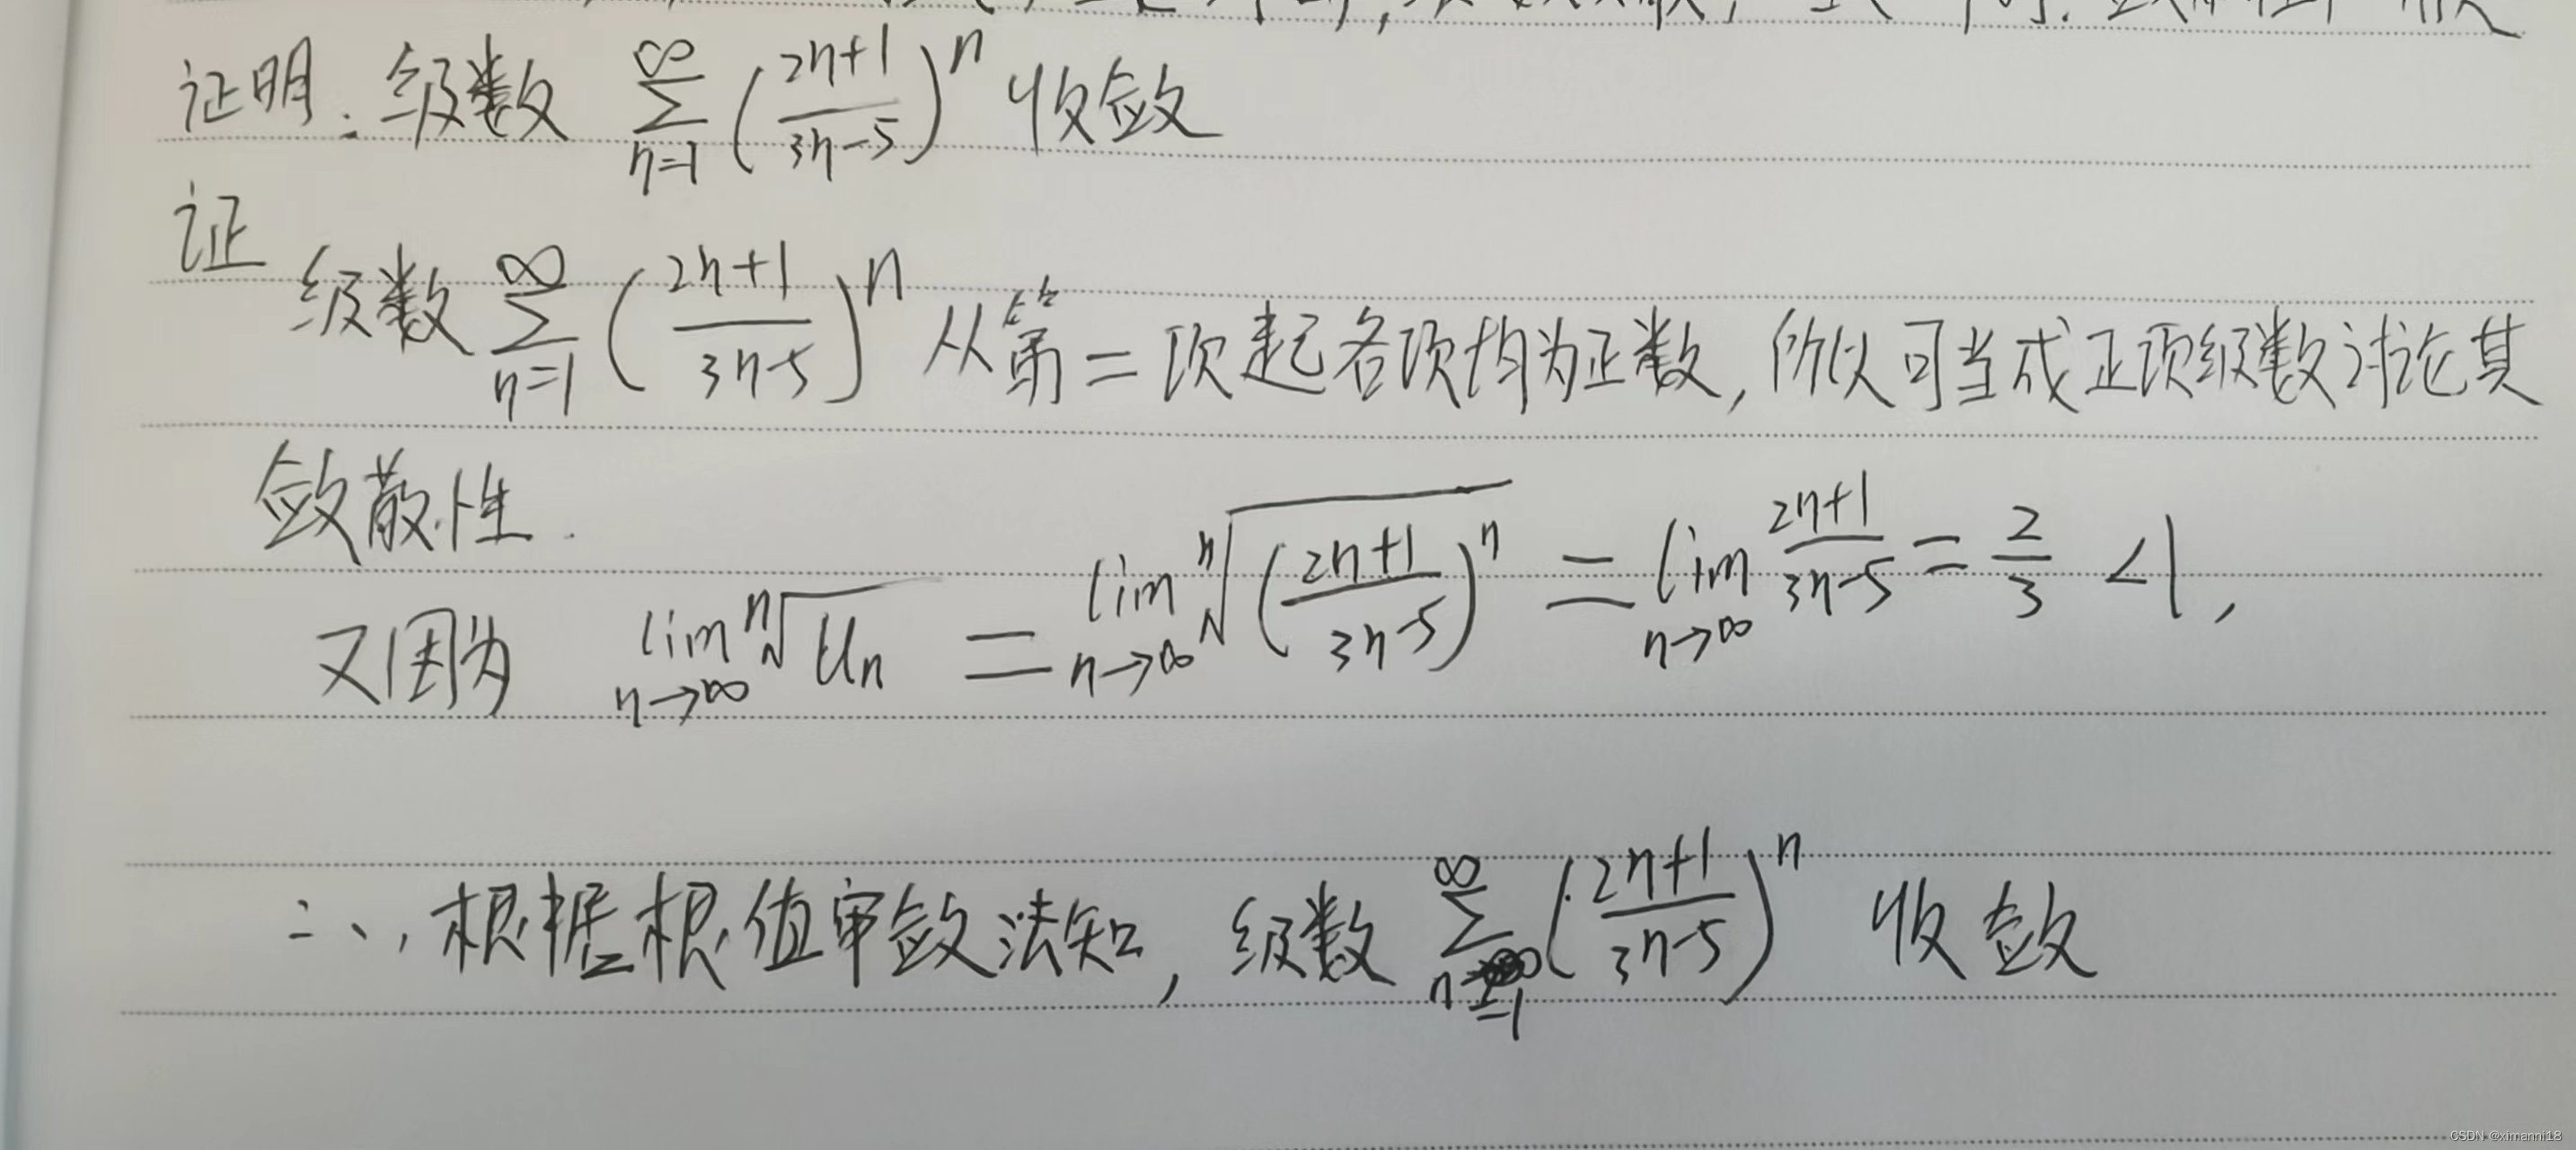 证明:级数 $\sum_{n=1}^{\infty}\left(\frac{2n+1}{3n-5}\right)^n$ 收敛
证
级数 $\sum_{n=1}^{\infty}\left(\frac{2n+1}{3n-5}\right)^n$ 从第二项起各项均为正数,所以可当成正项级数讨论其
敛散性.
又因为 $\lim_{n\to\infty}\sqrt[n]{u_n}=\lim_{n\to\infty}\sqrt[n]{\left(\frac{2n+1}{3n-5}\right)^n}=\lim_{n\to\infty}\frac{2n+1}{3n-5}=\frac{2}{3}<1$,
∴,根据根值审敛法知,级数 $\sum_{n=1}^{\infty}\left(\frac{2n+1}{3n-5}\right)^n$ 收敛
CSDN @ximanni18